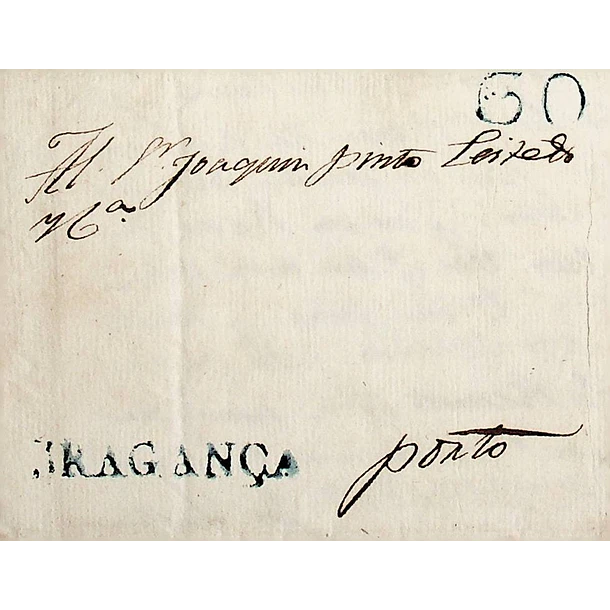 60
Sr. Joaquim Pinto Leite
BRAGANÇA
Porto